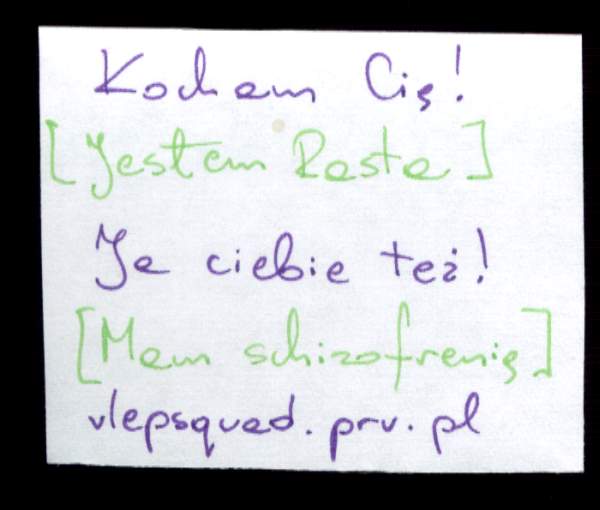 Kocham Cię!
[Jestem Rasta]
Ja ciebie też!
[Mam schizofrenię]
vlepsquad.prv.pl